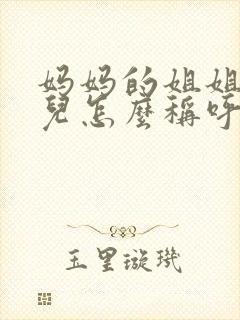 妈妈的姐姐
兒怎麼稱呼
玉里璇璣